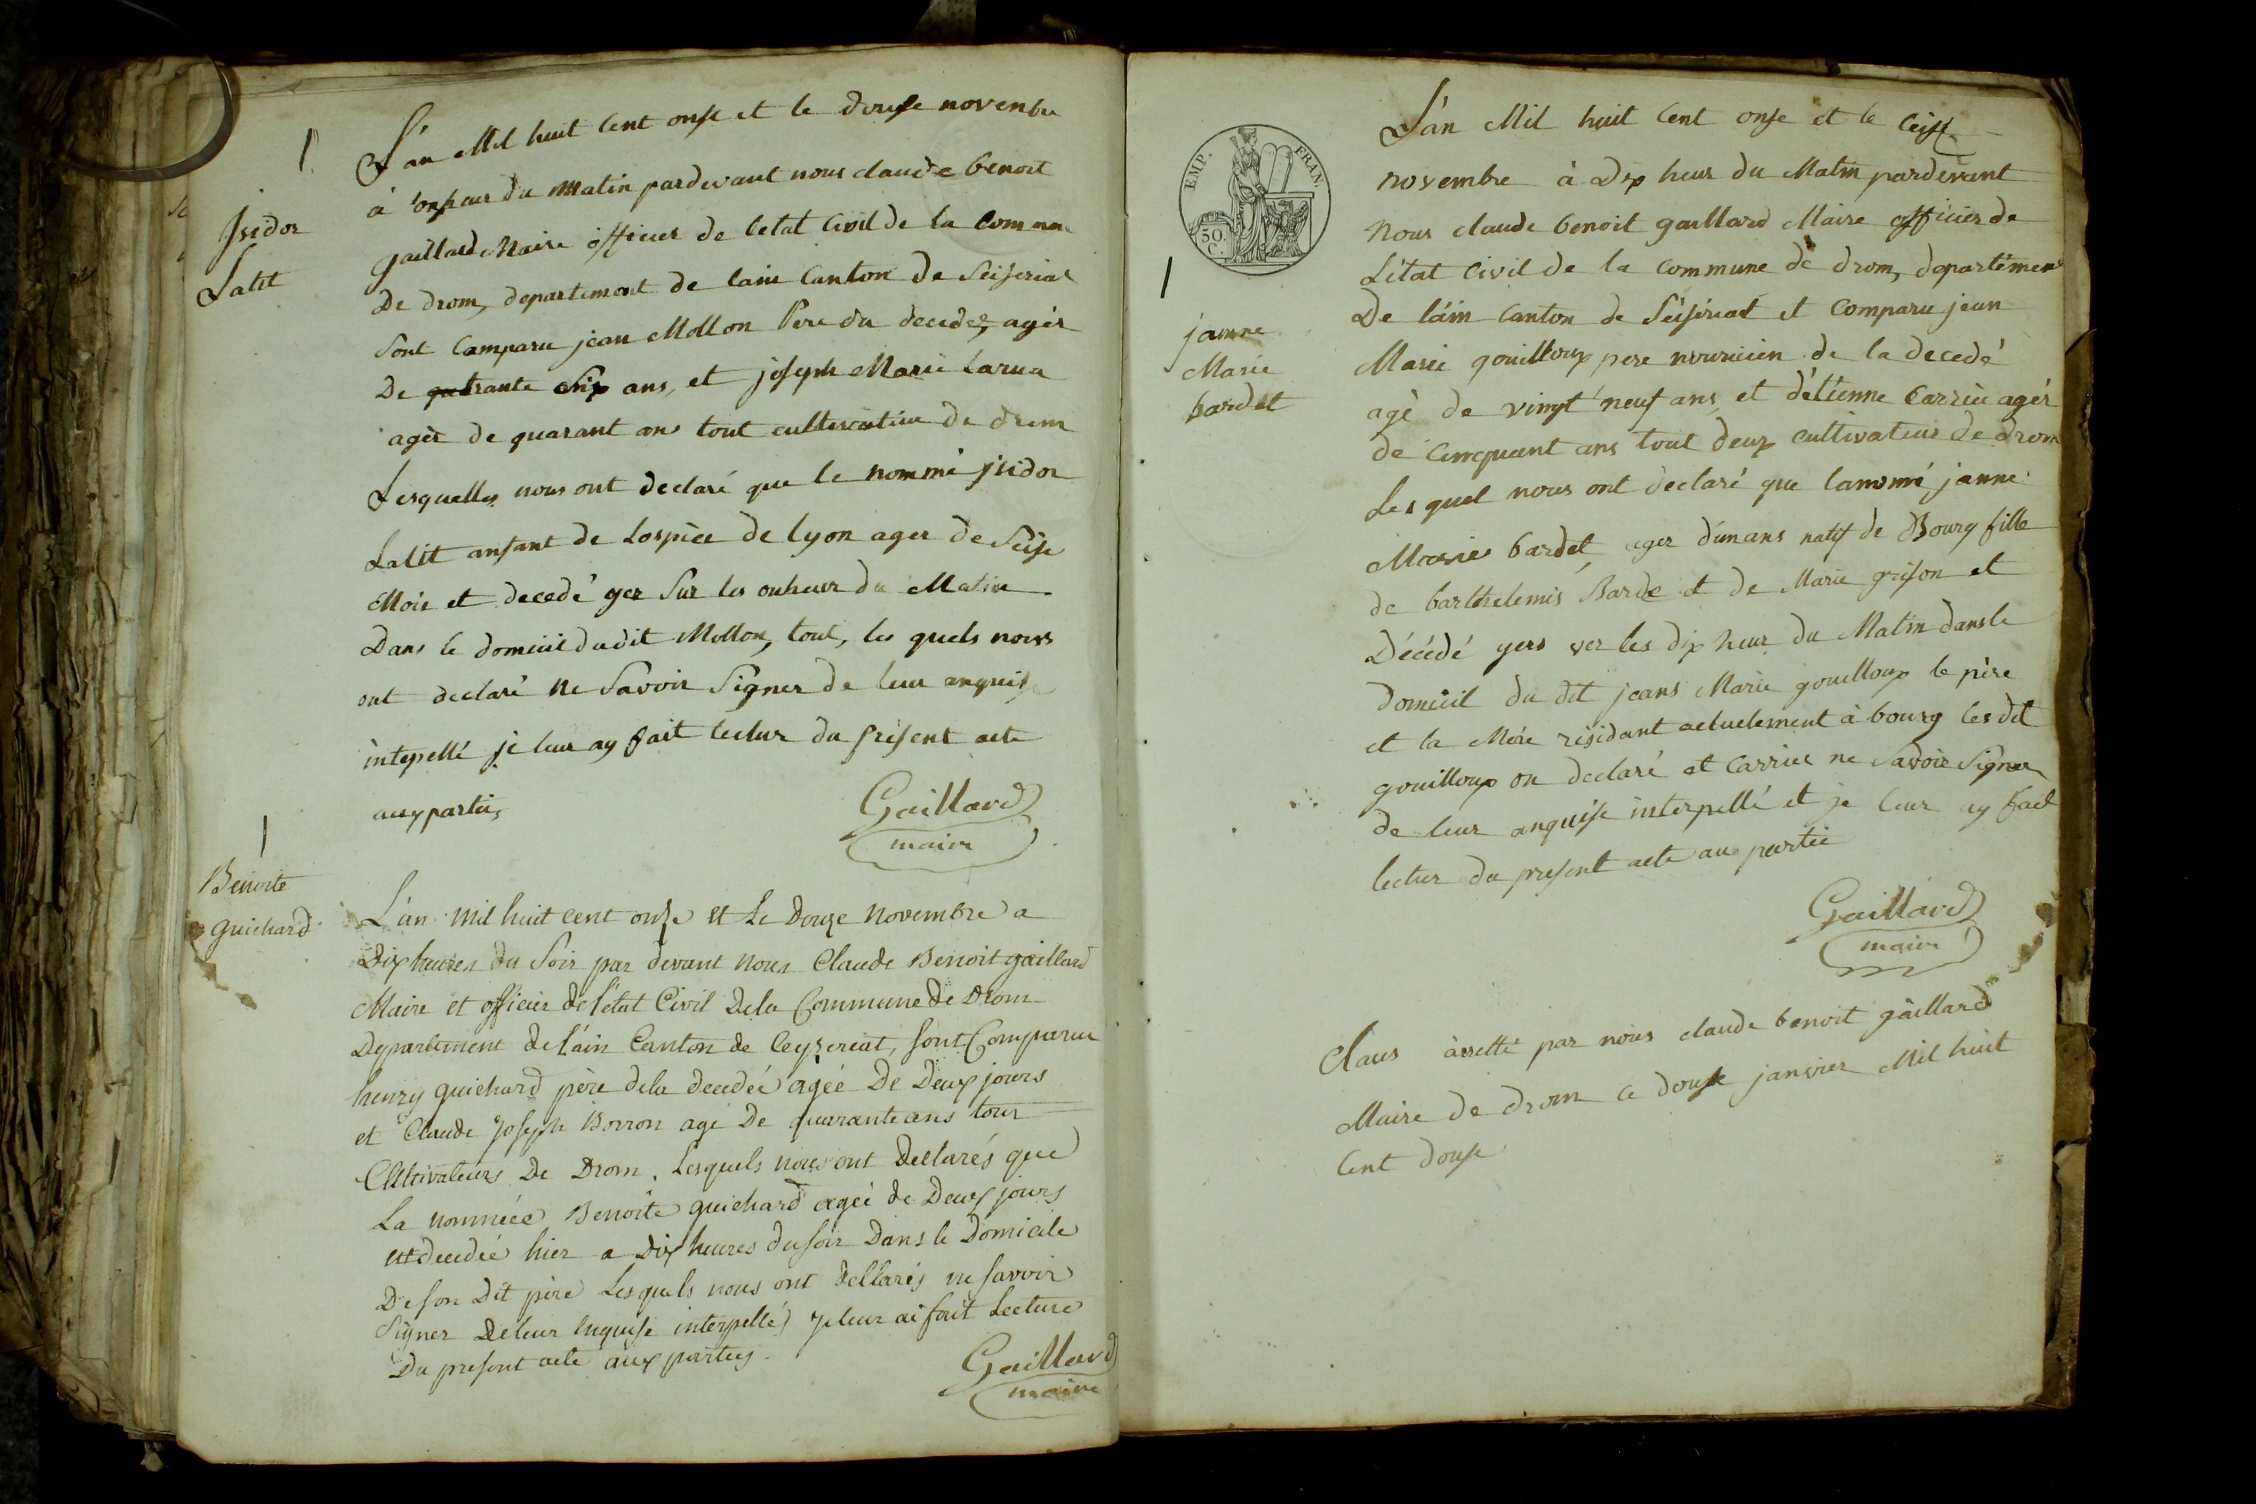 Isidor
Latit
L'an Mil huit Cent onse et le douse novenbre
à onsheur du matin pardevant nous claude benoit
gaillard Maire officier de letat Civil de la Commune
De drom, departement de lain Canton de Seiseriat
sont Comparu jean Mollon Pere du decedez, agér
De quatrante six ans, et joseph Marie Larua
agér de quarant ans tout cultivateur de drom
Lesquelles nous ont declaré que le nommé jsidor
Latit anfant de Lospice de lyon ager de Seise
Mois et decedé yer Sur les onheur du Matin
Dans le domicil dudit Mollon, tout, les quels nous
ont declaré ne Savoir Signer de leur anquise
intepellé je leur ay fait lectur du présent acte
aux partis
Gaillard
maire
Benoite
guichard
L'an mil huit cent onze et Le Douze Novembre a
Dix heures du Soir par devant Nous Claude Benoit gaillard
Maire et officier de l'état Civil Dela Commune de Drom
Departement de l'ain Canton de Ceyzeriat, sont Comparu
henry guichard père dela decedée agée De Deux jours
et Claude Joseph Borron agé De quarante ans tous
Cultivateurs De Drom. Lesquels nous ont Declarés que
La nommée Benoite guichard agée de Deux jours
est decedée hier a Dix heures du soir Dans le Domicile
De son Dit père Lesquels nous ont Declarés ne savoir
Signer De leur enquise interpellé) Je leur ai fait Lecture
Du present acte aux partys.
Gaillard
maire
EMP. FRAN.
50.
C.
janne
Marie
bardet
L'an Mil huit Cent onse et le Ceise
novembre à Dix heur du Matin pardevant
Nous claude benoit gaillard Maire officier de
Létat Civil de la Commune de drom, departement
De lain Canton de Seiseriat et Comparu jean
Marie gouilloux pere nouricien de la decedé
agé de vingt neuf ans, et d'étienne Carrié agér
de Cinquant ans tout deux cultivateur de drom
Les quel nous ont declaré que lanomé janne
Marie bardet, ager d'un ans natif de Bourg fille
de barthelemis Barde et de Marie grison et
Décédé yers ver les dix heur du Matin dans le
domicil du dit jeans Marie gouilloux le père
et la Mére résidant actuelement à bourg les dit
gouilloux on declaré et Carrier ne Savoir Signer
de leur anquise interpellé et je leur ay fait
lectur du present acte au partie
Gaillard
maire
Claus àrretté par nous claude benoit gaillard
Maire de drom ce douse janvier Mil huit
Cent douse